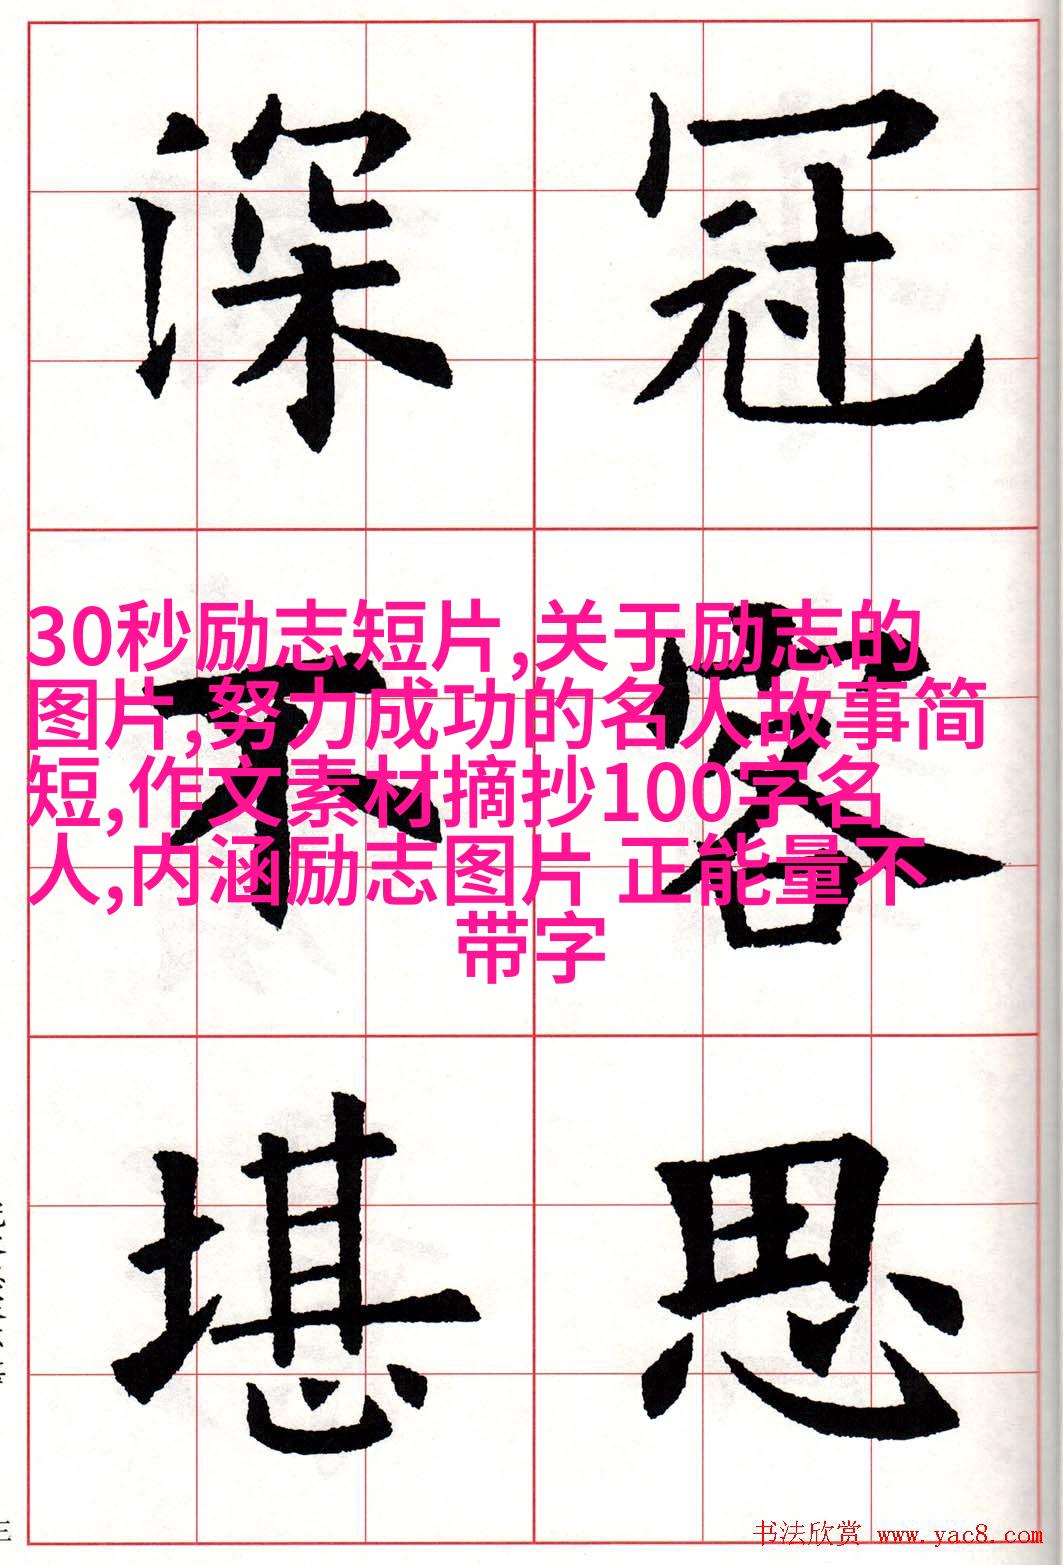 深 冠
不 容
堪 思
30秒励志短片,关于励志的
图片,努力成功的名人故事简
短,作文素材摘抄100字名
人,内涵励志图片 正能量不
带字
书法欣赏 www.yac8.com